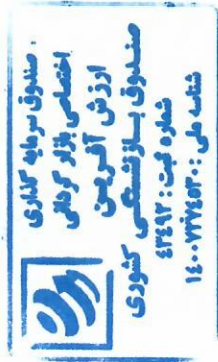 صندوق سرمایه گذاری
اختصاصی بازار گردانی
ارزش آفرین
صندوق بازنشستگی کشوری
شماره ثبت : ۴۳۴۹۳
شناسه ملی :